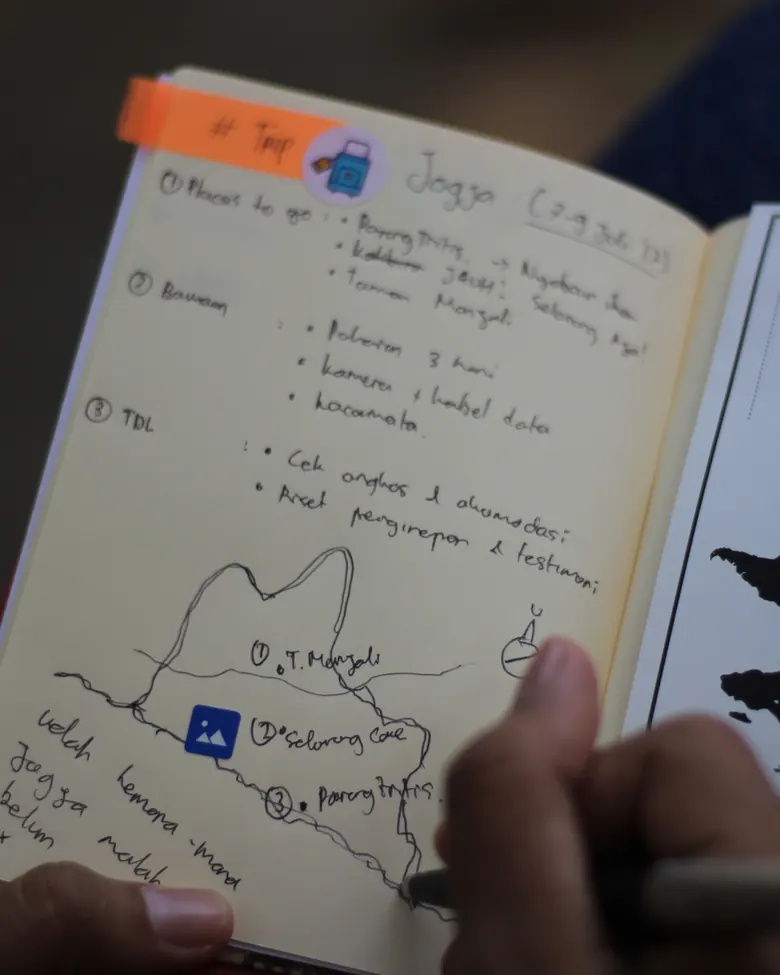 # Trip
Jogja (7-9 Juli '17)
① Places to go : • Parangtritis →
• Selarong
• Taman Mangli
② Bawaan : • Pakaian 3 hari
• kamera + kabel data
• kacamata.
③ TDL : • Cek ongkos & akomodasi
• Riset penginapan & testimoni
U
① • T. Mangli
② • Selarong Cave
③ • Parangtritis.
udah kemana-mana
Jogja
belum malah